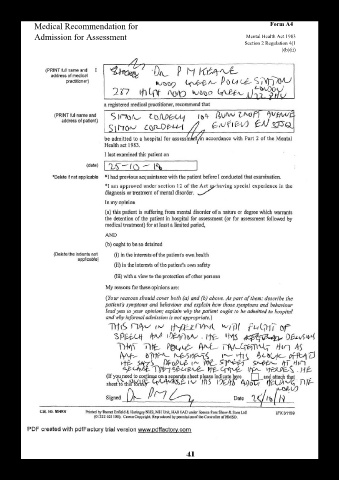 Medical Recommendation for
Form A4
Admission for Assessment
Mental Health Act 1983
Section 2 Regulation 4(1)
(PRINT full name and address of medical practitioner)
I
Dr P M KEANE
WOOD GREEN POLICE STATION
HIGH ROAD WOOD GREEN LONDON
a registered medical practitioner, recommend that
(PRINT full name and address of patient)
SIMON CORDELL 109 BURNCROFT AVENUE
SIMON CORDELL ENFIELD EN3 7JQ
be admitted to a hospital for assessment in accordance with Part 2 of the Mental
Health act 1983.
I last examined this patient on
(date)
25-10-18
*Delete if not applicable
*I had previous acquaintance with the patient before I conducted that examination.
*I am approved under section 12 of the Act as having special experience in the
diagnosis or treatment of mental disorder.
In my opinion
(a) this patient is suffering from mental disorder of a nature or degree which warrants
the detention of the patient in hospital for assessment (or for assessment followed by
medical treatment) for at least a limited period,
AND
(b) ought to be so detained
(Delete the indents not applicable)
(i) in the interests of the patient's own health
(ii) in the interests of the patient's own safety
(iii) with a view to the protection of other persons
My reasons for these opinions are:
(Your reasons should cover both (a) and (b) above. As part of them: describe the
patient's symptoms and behaviour and explain how those symptoms and behaviour
lead you to your opinion; explain why the patient ought to be admitted to hospital
and why informal admission is not appropriate.)
THIS MAN IS WITH FLIGHT OF
SPEECH AND IDEATION. HE HAS DELUSIONS
THAT THE POLICE ARE TARGETTING HIM AS
ARE OTHER IN HIS BLOCK OF FLATS
HE SAYS PEOPLE IN THE STREET AT HIM
HE HEROES. HE
(If you need to continue on a separate sheet please indicate here and attach that
sheet to this form)
IS GRANDIOSE IN HIS IDEAS ABOUT HELPING THE
WORLD
Signed
Date 25/10/18
Cat. No. MHA4
41
PDF created with pdfFactory trial version www.pdffactory.com